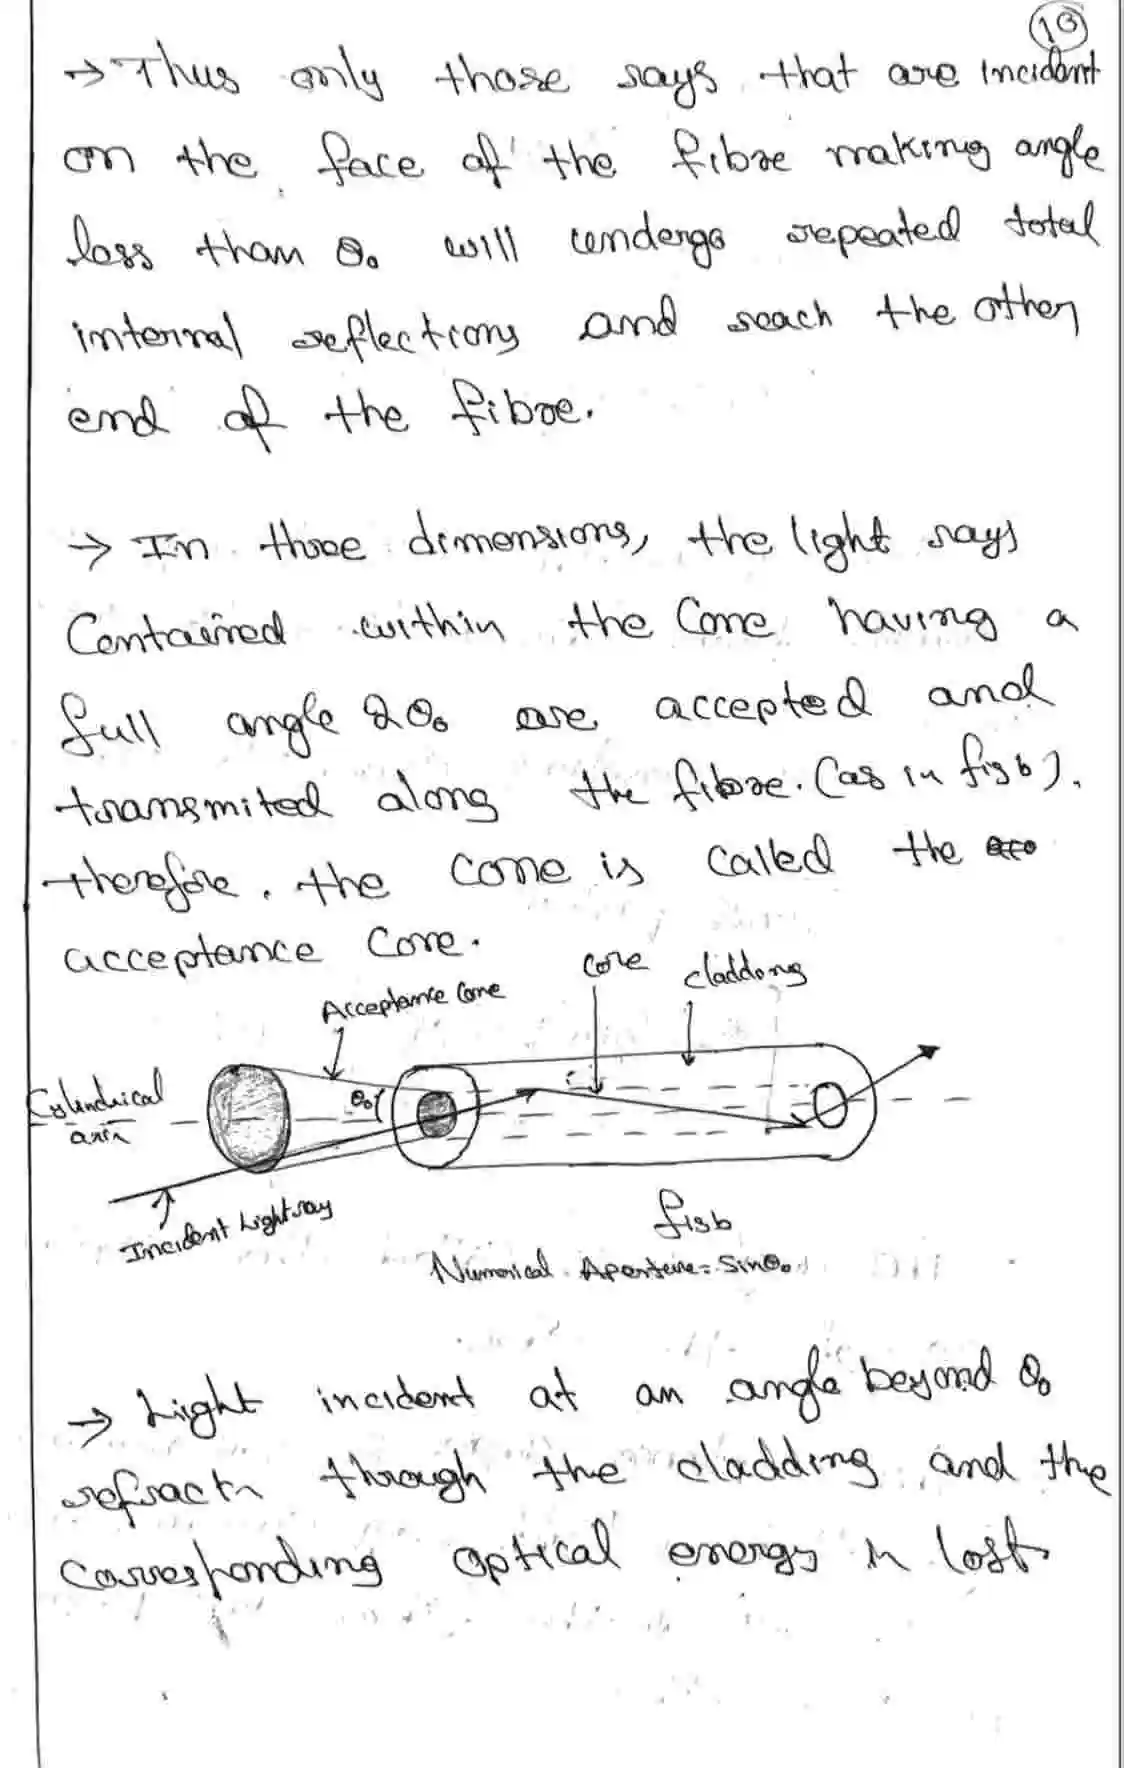 10
→ Thus only those rays that are incident
on the face of the fibre making angle
less than θ₀ will undergo repeated total
internal reflections and reach the other
end of the fibre.
→ In three dimensions, the light rays
Contained within the Cone having a
full angle 2θ₀ are accepted and
transmited along the fibre. (as in fig b).
therefore, the cone is called the
acceptance Cone.
core cladding
Acceptance Cone
Cylindrical
axis
θ₀
Incident Light ray
fig b
Numerical Aperture = Sinθ₀
→ Light incident at an angle beyond θ₀
refracts through the cladding and the
Corresponding optical energy is lost.